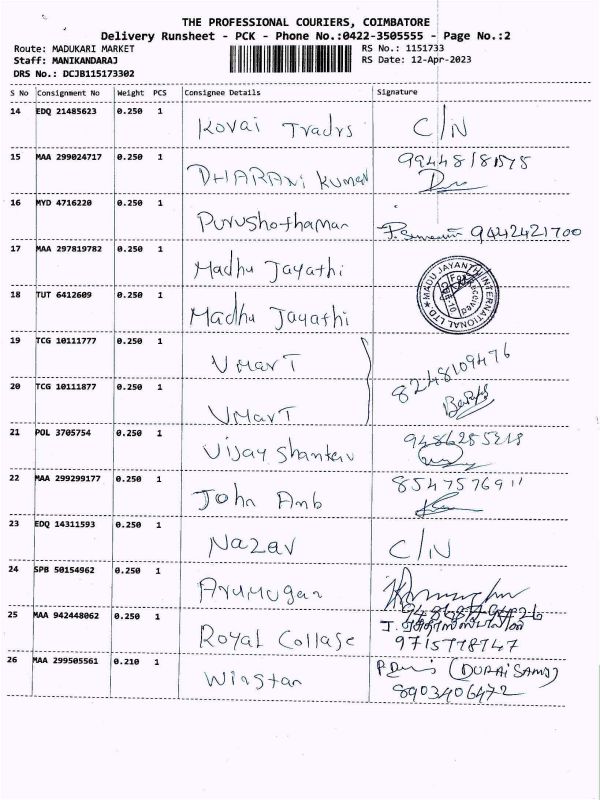 THE PROFESSIONAL COURIERS, COIMBATORE
Delivery Runsheet - PCK - Phone No.:0422-3505555 - Page No.:2
Route: MADUKARI MARKET RS No.: 1151733
Staff: MANIKANDARAJ RS Date: 12-Apr-2023
DRS No.: DCJB115173302
S No Consignment No Weight PCS Consignee Details Signature
14 EDQ 21485623 0.250 1 Kovai Tradrs C/N
15 MAA 299024717 0.250 1 DHARANi Kumar
16 MYD 4716220 0.250 1 Purushothaman 9442421700
17 MAA 297819782 0.250 1 Madhu Jayathi
MADU JAYANTHI INTERNATIONAL LTD
18 TUT 6412609 0.250 1 Madhu Jayathi
19 TCG 10111777 0.250 1 VMarT 8248109476
20 TCG 10111877 0.250 1 VMarT
21 POL 3705754 0.250 1 Vijay Shankar
22 MAA 299299177 0.250 1 John Amb
23 EDQ 14311593 0.250 1 Nazar C/N
24 SPB 50154962 0.250 1 Arumugan
25 MAA 942448062 0.250 1 Royal Collage
26 MAA 299505561 0.210 1 Winstan (DURAiSAMY)
8903406472